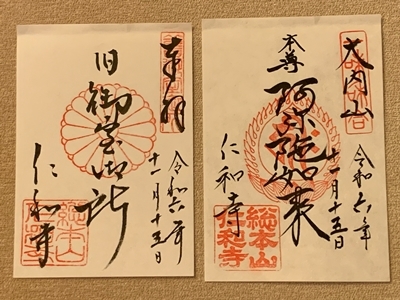 大内山
本尊
阿弥陀如来
仁和寺
令和六年
十一月十五日
総本山
仁和寺
奉拝
旧御室御所
仁和寺
令和六年
十一月十五日